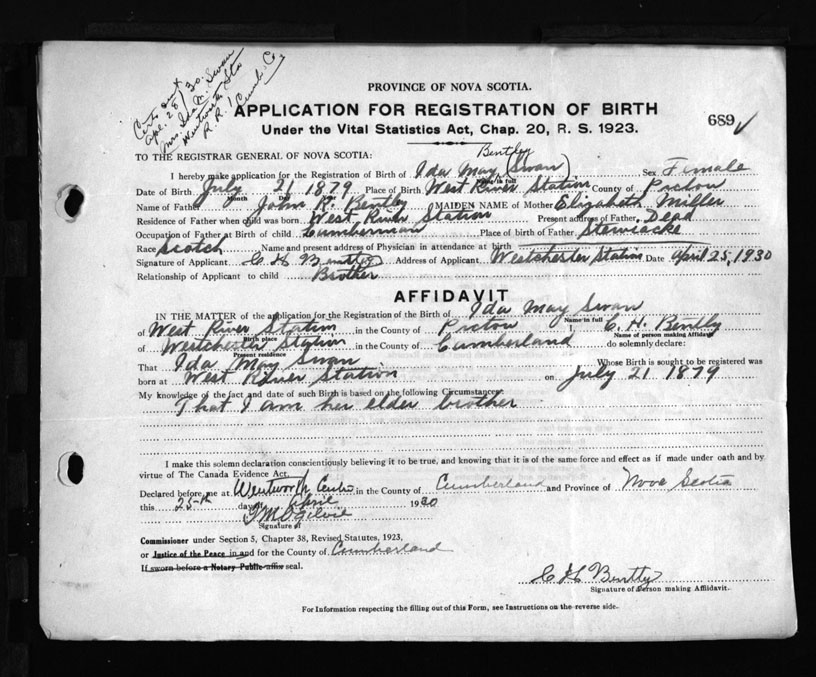 Certs out
Apl. 28/30.
Mrs. Ida M. Swan
Wentworth Sta
R.R. 1 Cumb. Co
PROVINCE OF NOVA SCOTIA.
APPLICATION FOR REGISTRATION OF BIRTH
689
Under the Vital Statistics Act, Chap. 20, R. S. 1923.
TO THE REGISTRAR GENERAL OF NOVA SCOTIA:
Bentley
I hereby make application for the Registration of Birth of Ida May (Swan) Sex Female
Name in full
Date of Birth July 21 1879 Place of Birth West River Station County of Pictou
Month Day
Name of Father John R. Bentley MAIDEN NAME of Mother Elizabeth Miller
Residence of Father when child was born West River Station Present address of Father Dead
Occupation of Father at Birth of child Lumberman Place of birth of Father Stewiacke
Race Scotch Name and present address of Physician in attendance at birth
Signature of Applicant C H Bently Address of Applicant Westchester Station Date April 25, 1930
Relationship of Applicant to child Brother
AFFIDAVIT
IN THE MATTER of the application for the Registration of the Birth of Ida May Swan
Name in full
of West River Station in the County of Pictou I C. H. Bently
Birth place Name of person making Affidavit
of Westchester Station in the County of Cumberland do solemnly declare:
Present residence
That Ida May Swan Whose Birth is sought to be registered was
born at West River Station on July 21 1879
My knowledge of the fact and date of such Birth is based on the following Circumstances:
That I am her elder brother
I make this solemn declaration conscientiously believing it to be true, and knowing that it is of the same force and effect as if made under oath and by
virtue of The Canada Evidence Act.
Declared before me at Wentworth Centre in the County of Cumberland and Province of Nova Scotia
this 25th day of April 1930
Ogilvie
Signature of
Commissioner under Section 5, Chapter 38, Revised Statutes, 1923,
or Justice of the Peace in and for the County of Cumberland
If sworn before a Notary Public affix seal.
C H Bently
Signature of Person making Affidavit.
For Information respecting the filling out of this Form, see Instructions on the reverse side.